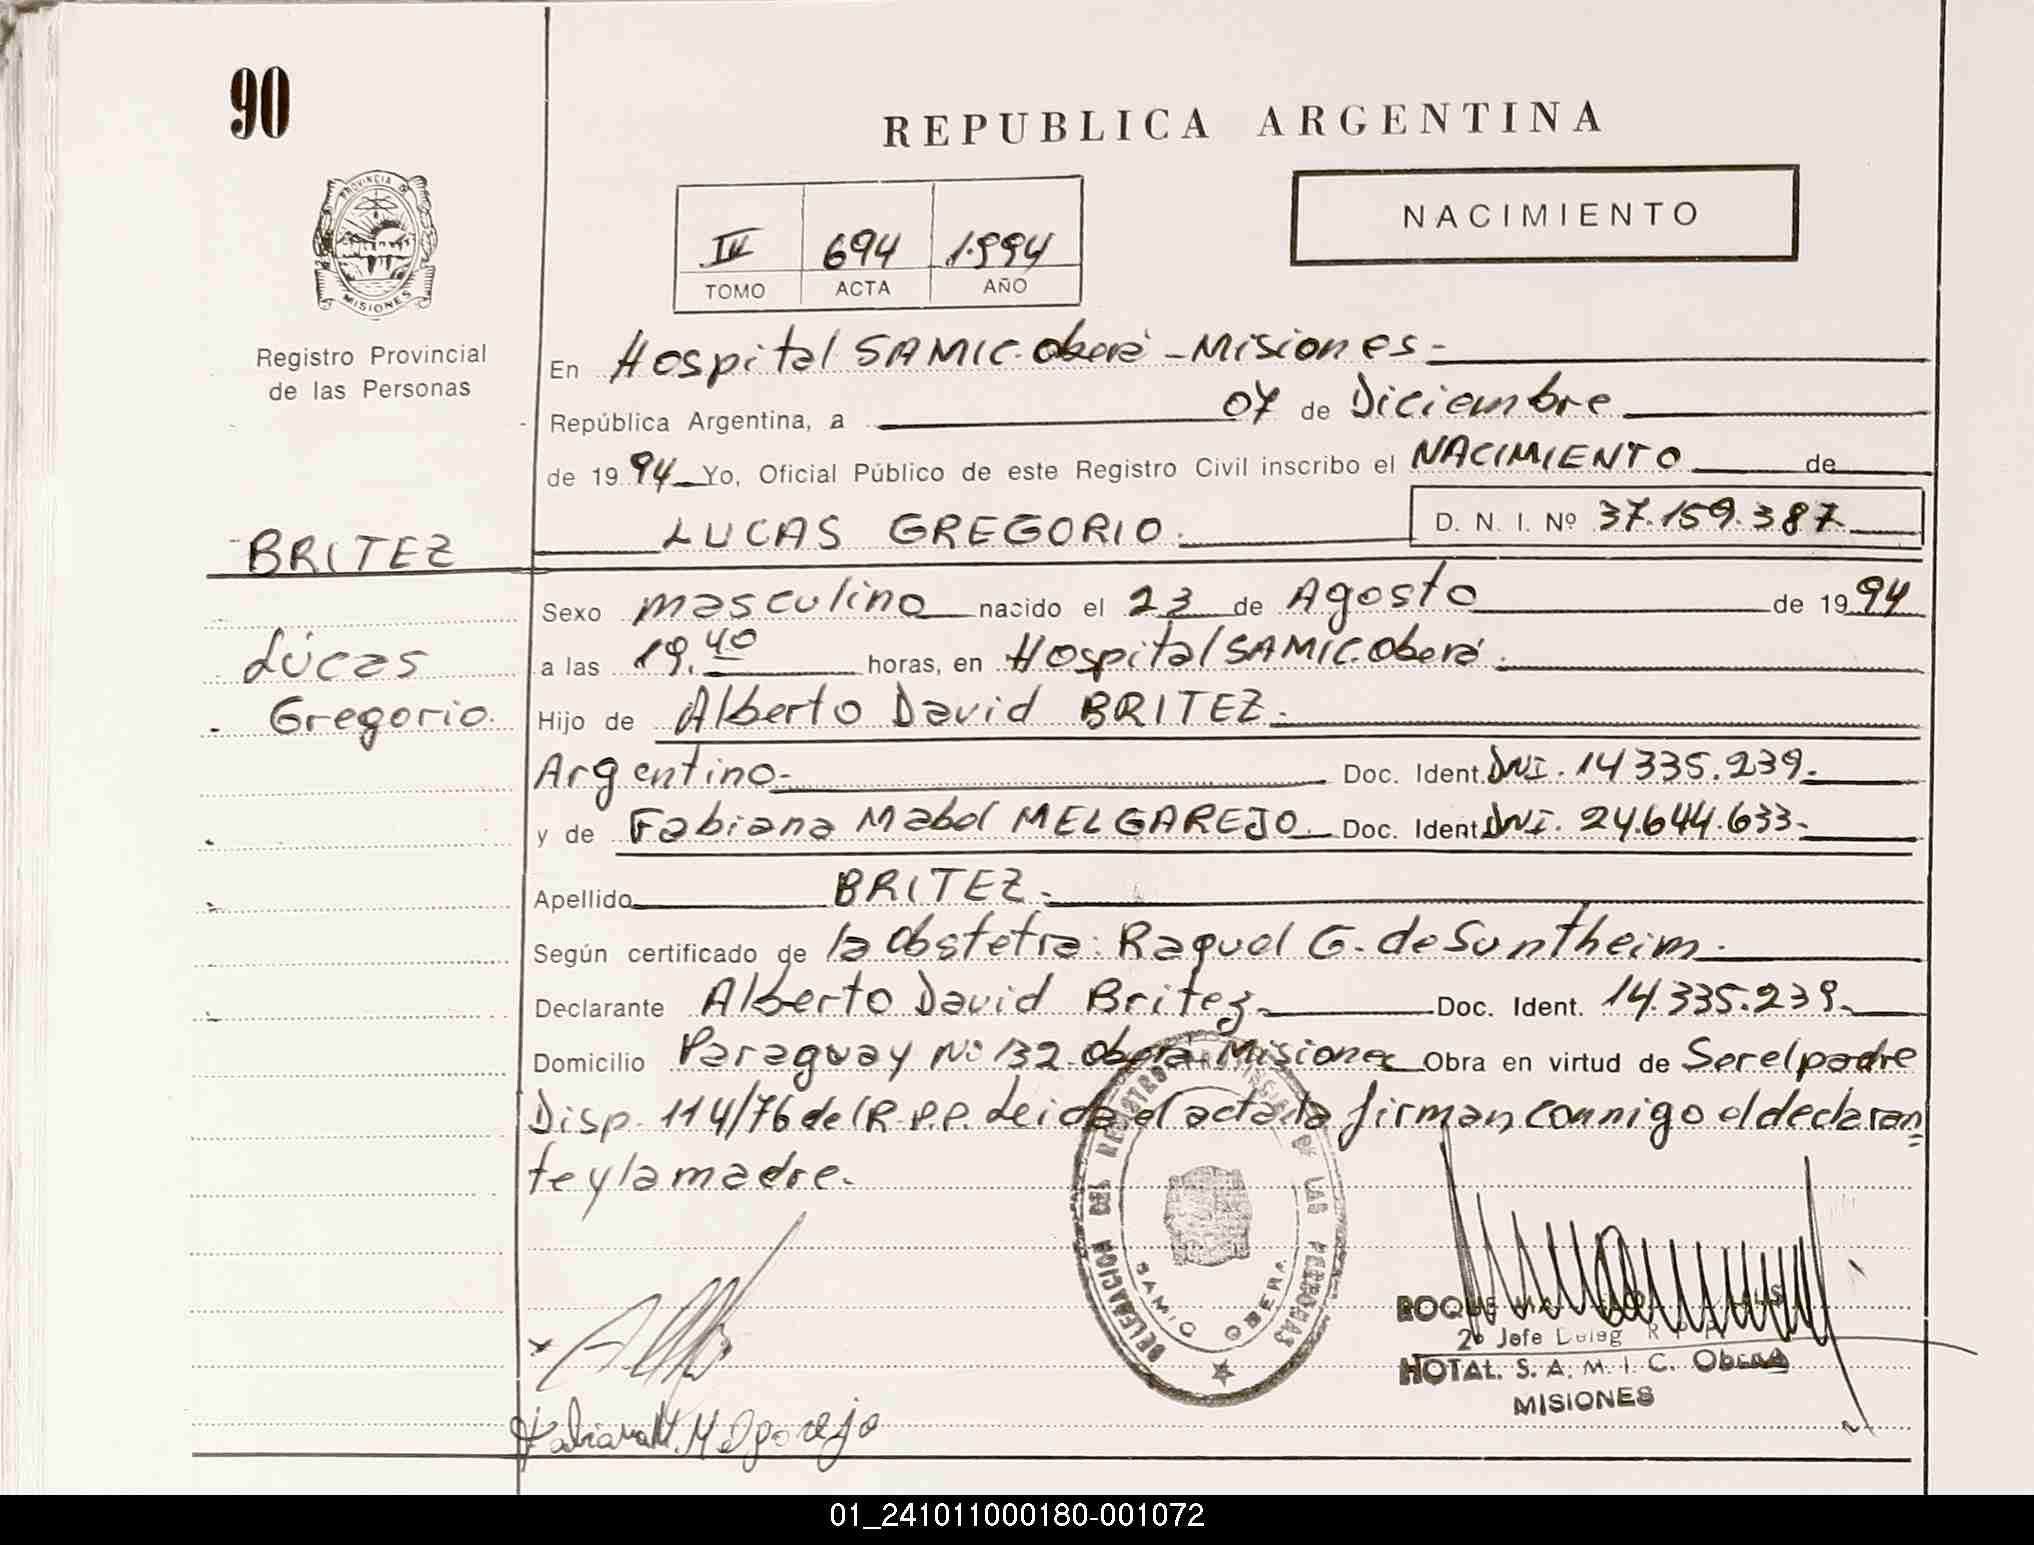 90
REPUBLICA ARGENTINA
PROVINCIA DE
MISIONES
Registro Provincial
de las Personas
NACIMIENTO
IV 694 1.994
TOMO ACTA AÑO
En Hospital SAMIC. Oberá - Misiones -
República Argentina, a 07 de Diciembre
de 19 94 Yo, Oficial Público de este Registro Civil inscribo el NACIMIENTO de
LUCAS GREGORIO. D. N. I. Nº 37.159.387
BRITEZ
Lucas
Gregorio.
Sexo masculino nacido el 23 de Agosto de 19 94
a las 19.40 horas, en Hospital SAMIC. Oberá.
Hijo de Alberto David BRITEZ.
Argentino- Doc. Ident. DNI. 14335.239.
y de Fabiana Mabel MELGAREJO Doc. Ident. DNI. 24.644.633-
Apellido BRITEZ.
Según certificado de la Obstetra: Raquel G. de Suntheim.
Declarante Alberto David Britez Doc. Ident. 14.335.239.
Domicilio Paraguay Nº 132. Oberá. Misiones Obra en virtud de Ser el padre
Disp. 114/76 del R.P.P. Leida el acta la firman conmigo el declaran=
te y la madre.
DELEGACION DEL REGISTRO PROVINCIAL DE LAS PERSONAS
SAMIC OBERA
ROQUE
2º Jefe Deleg
HOTAL. S. A. M. I. C. OBERA
MISIONES
Fabiana M. Melgarejo
01_241011000180-001072